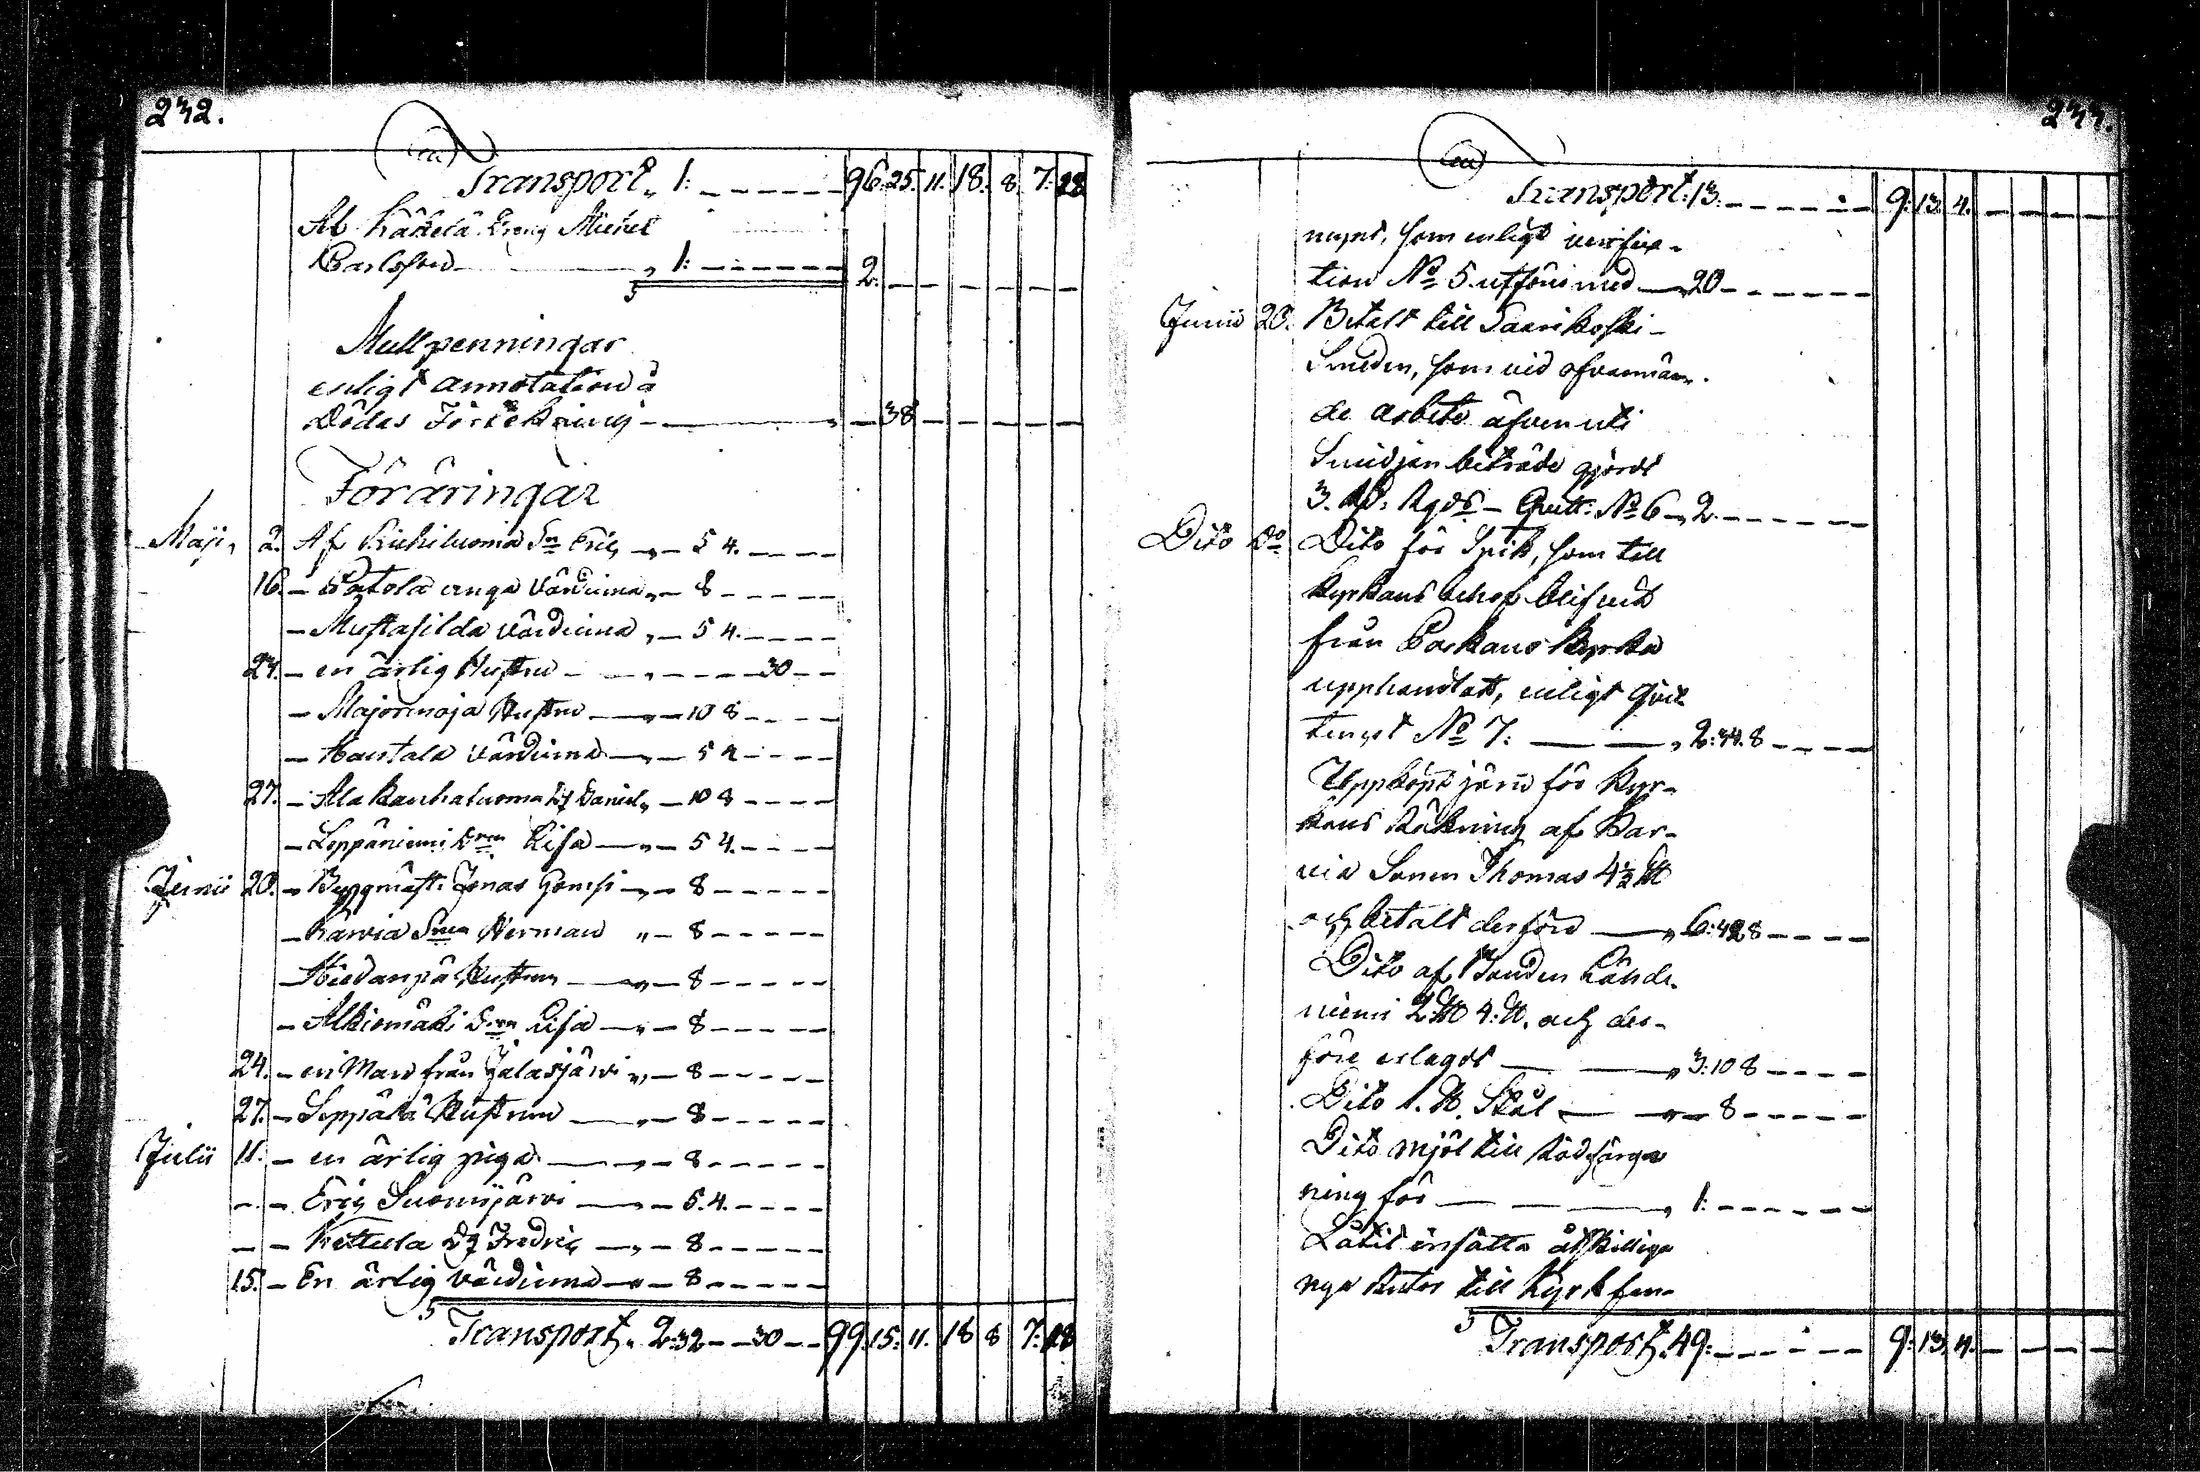 232.
Transport. 1: — 96. 25. 11. 18. 8. 7: 28
Af Käkelä Dreng Michel
Carlsson — 1: — 2. —
Mullpenningar
enligt annotation å
Dödas Förtekning — 38 —
Föräringar
Maji 2. Af Kuhiluoma Sn Eric — 5 4.
16. — Potola unga Värdinna — 8
— Mustasilda Värdinna — 5 4.
23. — en ärlig Hustru — 30
— Majormaja Hustru — 10 8
— Hautala Värdinna — 5 4
27. — Ala Kauhaluoma Dg Daniel — 10 8
— Leppäniemi Drn Lisa — 5 4.
Junii 20. — Byggmäst. Jonas — 8
— Karvia Smen Herman — 8
— Hiedanpä Hustrun — 8
— Alkiomäki Lisa — 8
24. — en Man från Jalasjärvi — 8
27. — Seppälä Hustrun — 8
Julii 11. — en ärlig piga — 8
— — Eric Suomijärvi — 5. 4.
— — Kettula Dg Fredric — 8
15. — En ärlig Värdinna — 8
Transport. 2: 32 — 30 — 99. 15. 11. 18 8 7: 28
233.
Transport: 13: — 9: 13. 4.
ment, som enligt verifica-
tion No 5. utföres med — 20
Junii 20. Betalt till Saarikoski
Smeden, som vid ofvannäm-
de arbete äfven uti
Smidjan beträde gjordt
3. Rgds — Quitt: No 6 — 2.
Dito Do Dito för Spik, som till
Kyrkans behof blifvit
från Parkano Kyrka
upphandlat, enligt Quit
tenget No 7: — 2: 34. 8
Uppköpt järn för Kyr-
kans Räkning af Kar-
via Sonen Thomas 4½
och betalt derföre — 6: 42 8
Dito af Bonden Lände-
niemi 2 4. och der-
före erlagdt — 3: 10 8
Dito 1. Stål — 8
Dito mjöl till Rödfärg
ning för — 1:
Låtit insätta åtskilliga
nya Rutor till Kyrk fen-
Transport. 49: — 9: 13. 4.